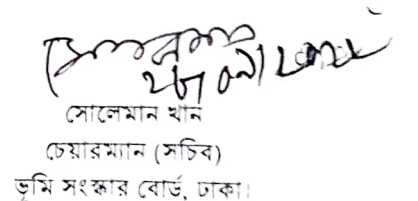 সোলেমান খান
চেয়ারম্যান (সচিব)
ভূমি সংস্কার বোর্ড, ঢাকা।